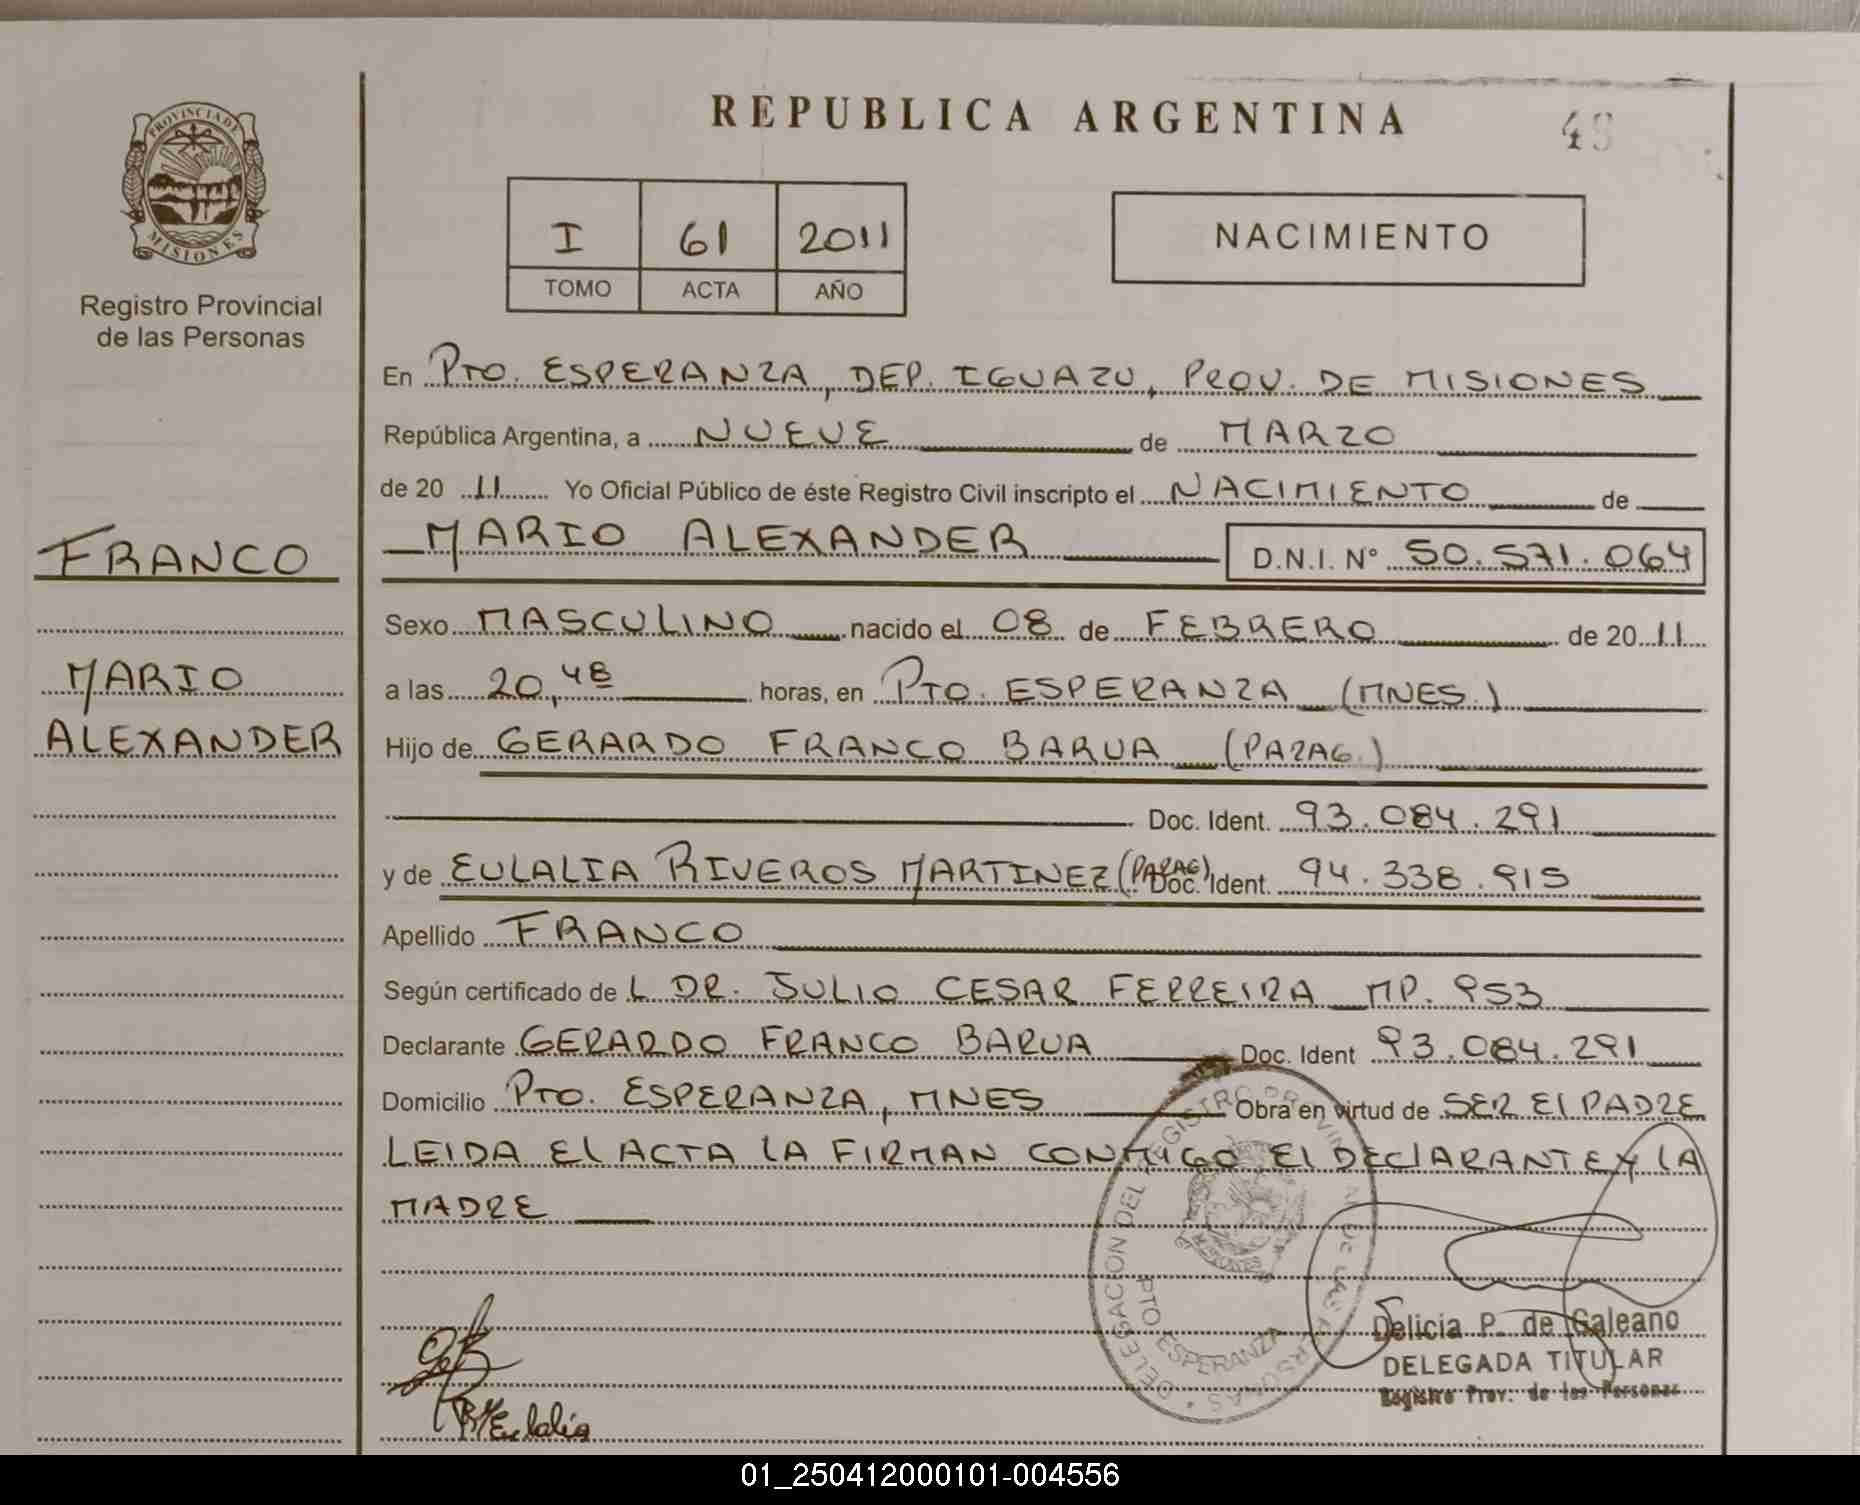 PROVINCIA DE
MISIONES
Registro Provincial
de las Personas
FRANCO
MARIO
ALEXANDER
REPUBLICA ARGENTINA
49
I 61 2011
TOMO ACTA AÑO
NACIMIENTO
En PTO. ESPERANZA, DEP. IGUAZU, PROV. DE MISIONES
República Argentina, a NUEVE de MARZO
de 20 11 Yo Oficial Público de éste Registro Civil inscripto el NACIMIENTO de
MARIO ALEXANDER D.N.I. N° 50.571.064
Sexo MASCULINO nacido el 08 de FEBRERO de 20 11
a las 20,48 horas, en PTO. ESPERANZA (MNES.)
Hijo de GERARDO FRANCO BARUA (PARAG.)
Doc. Ident. 93.084.291
y de EULALIA RIVEROS MARTINEZ (PARAG) Doc. Ident. 94.338.915
Apellido FRANCO
Según certificado de L DR. JULIO CESAR FERREIRA MP. 953
Declarante GERARDO FRANCO BARUA Doc. Ident 93.084.291
Domicilio PTO. ESPERANZA, MNES Obra en virtud de SER El PADRE
LEIDA El ACTA LA FIRMAN CONMIGO El DEClARANTE Y LA
MADRE
DELEGACION DEL REGISTRO PROVINCIAL DE LAS PERSONAS
PTO ESPERANZA
Delicia P. de Galeano
DELEGADA TITULAR
Registro Prov. de las Personas
Eulalia
01_250412000101-004556